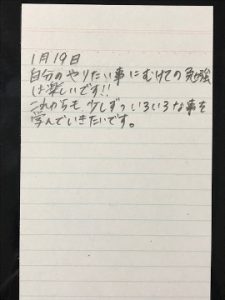 1月19日
自分のやりたい事にむけての勉強
は楽しいです!!
これからも、少しずついろいろな事を
学んでいきたいです。